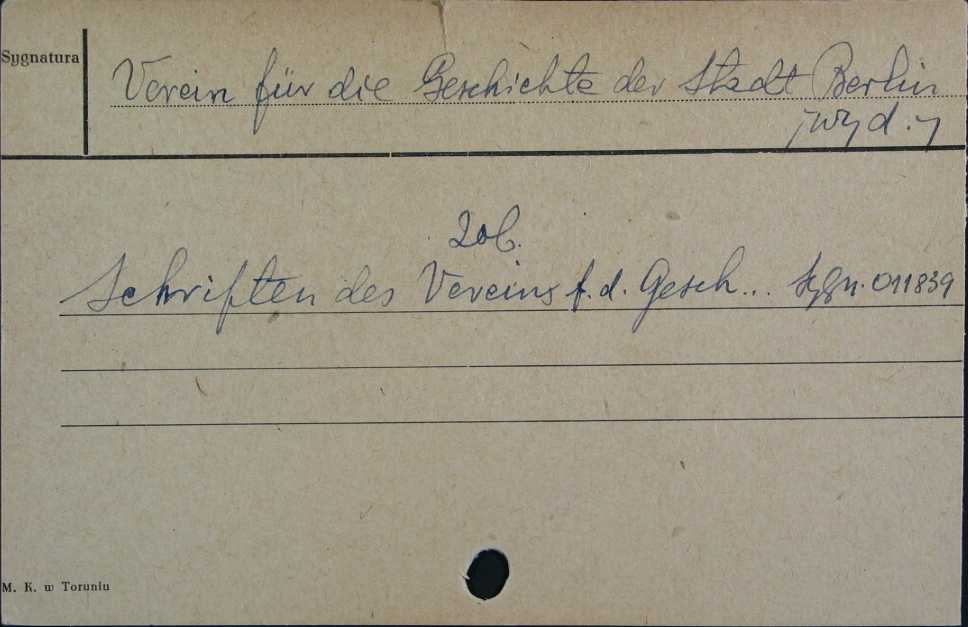 Sygnatura
Verein für die Geschichte der Stadt Berlin
/wyd./
Zob.
Schriften des Vereins f. d. Gesch... Sygn. 011839
M. K. w Toruniu